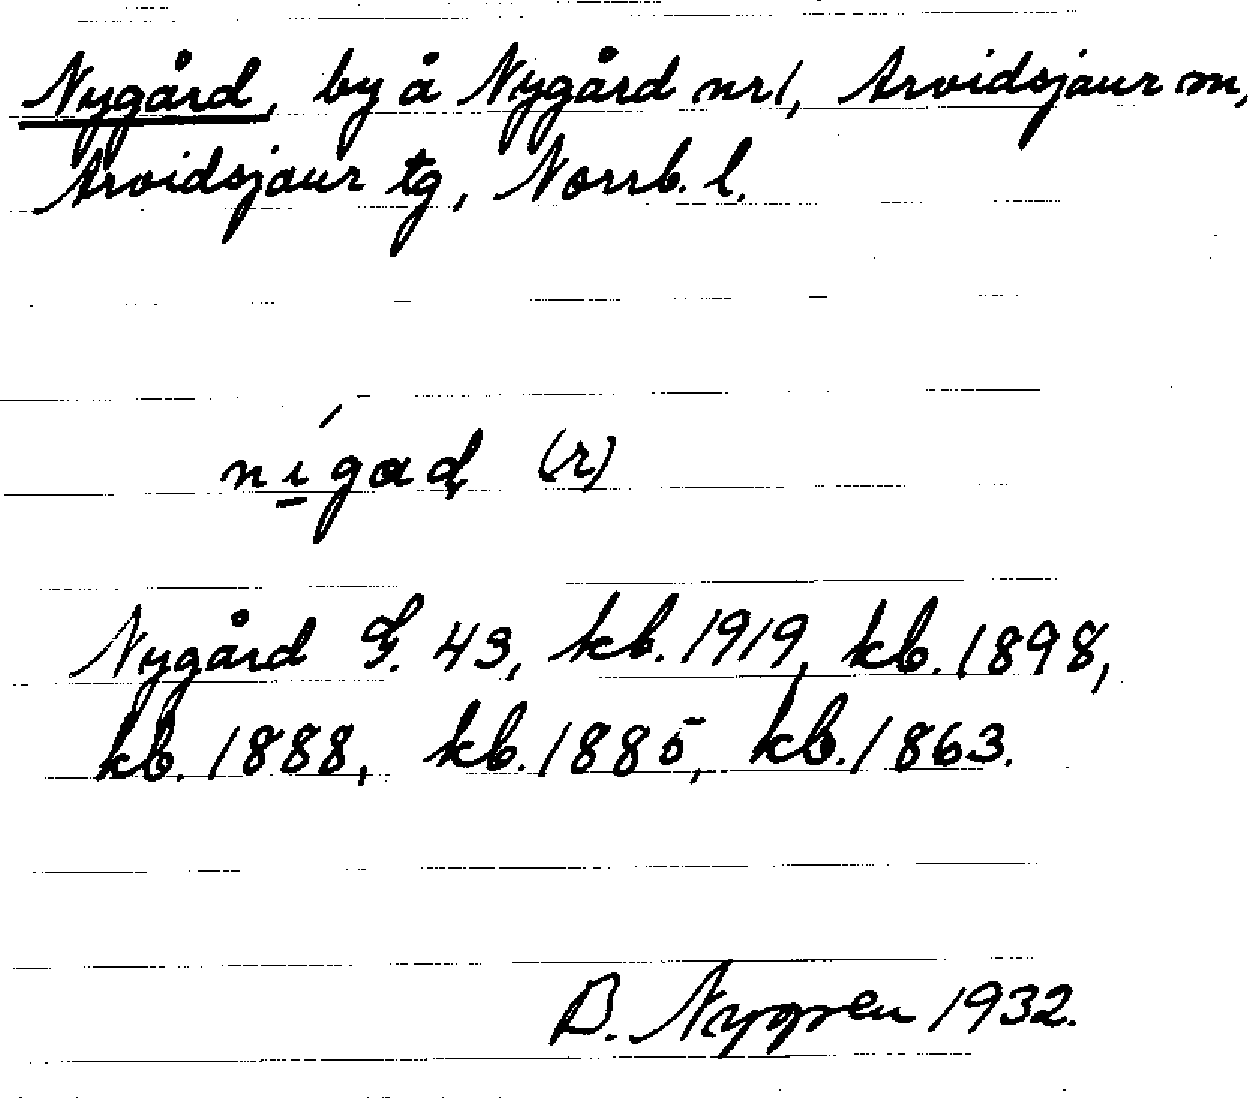 Nygård, by å Nygård nr 1, Arvidsjaur sn,
Arvidsjaur tg, Norrb. l.
nígad (r)
Nygård G. 43, kb. 1919, kb. 1898,
kb. 1888, kb. 1885, kb. 1863.
B. Nygren 1932.